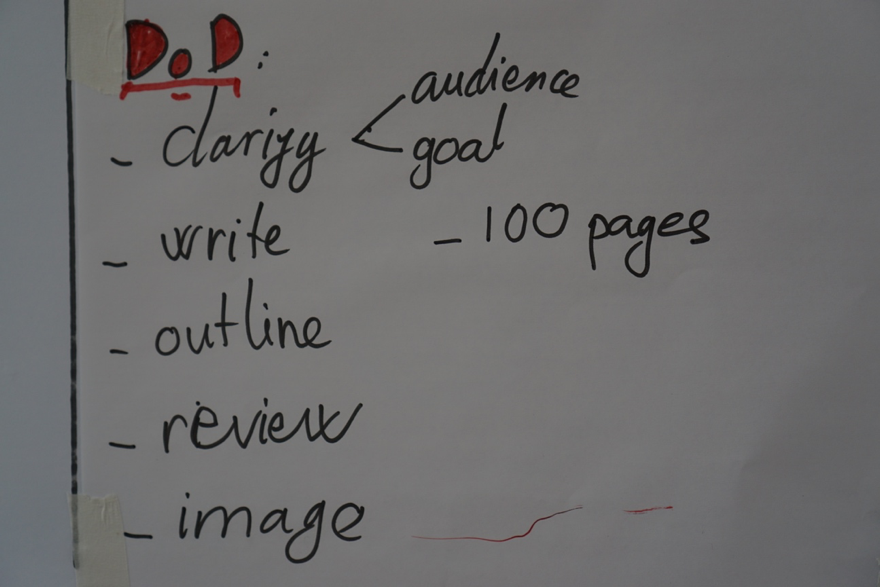 DoD:
- clarify < audience
goal
- write - 100 pages
- outline
- review
- image